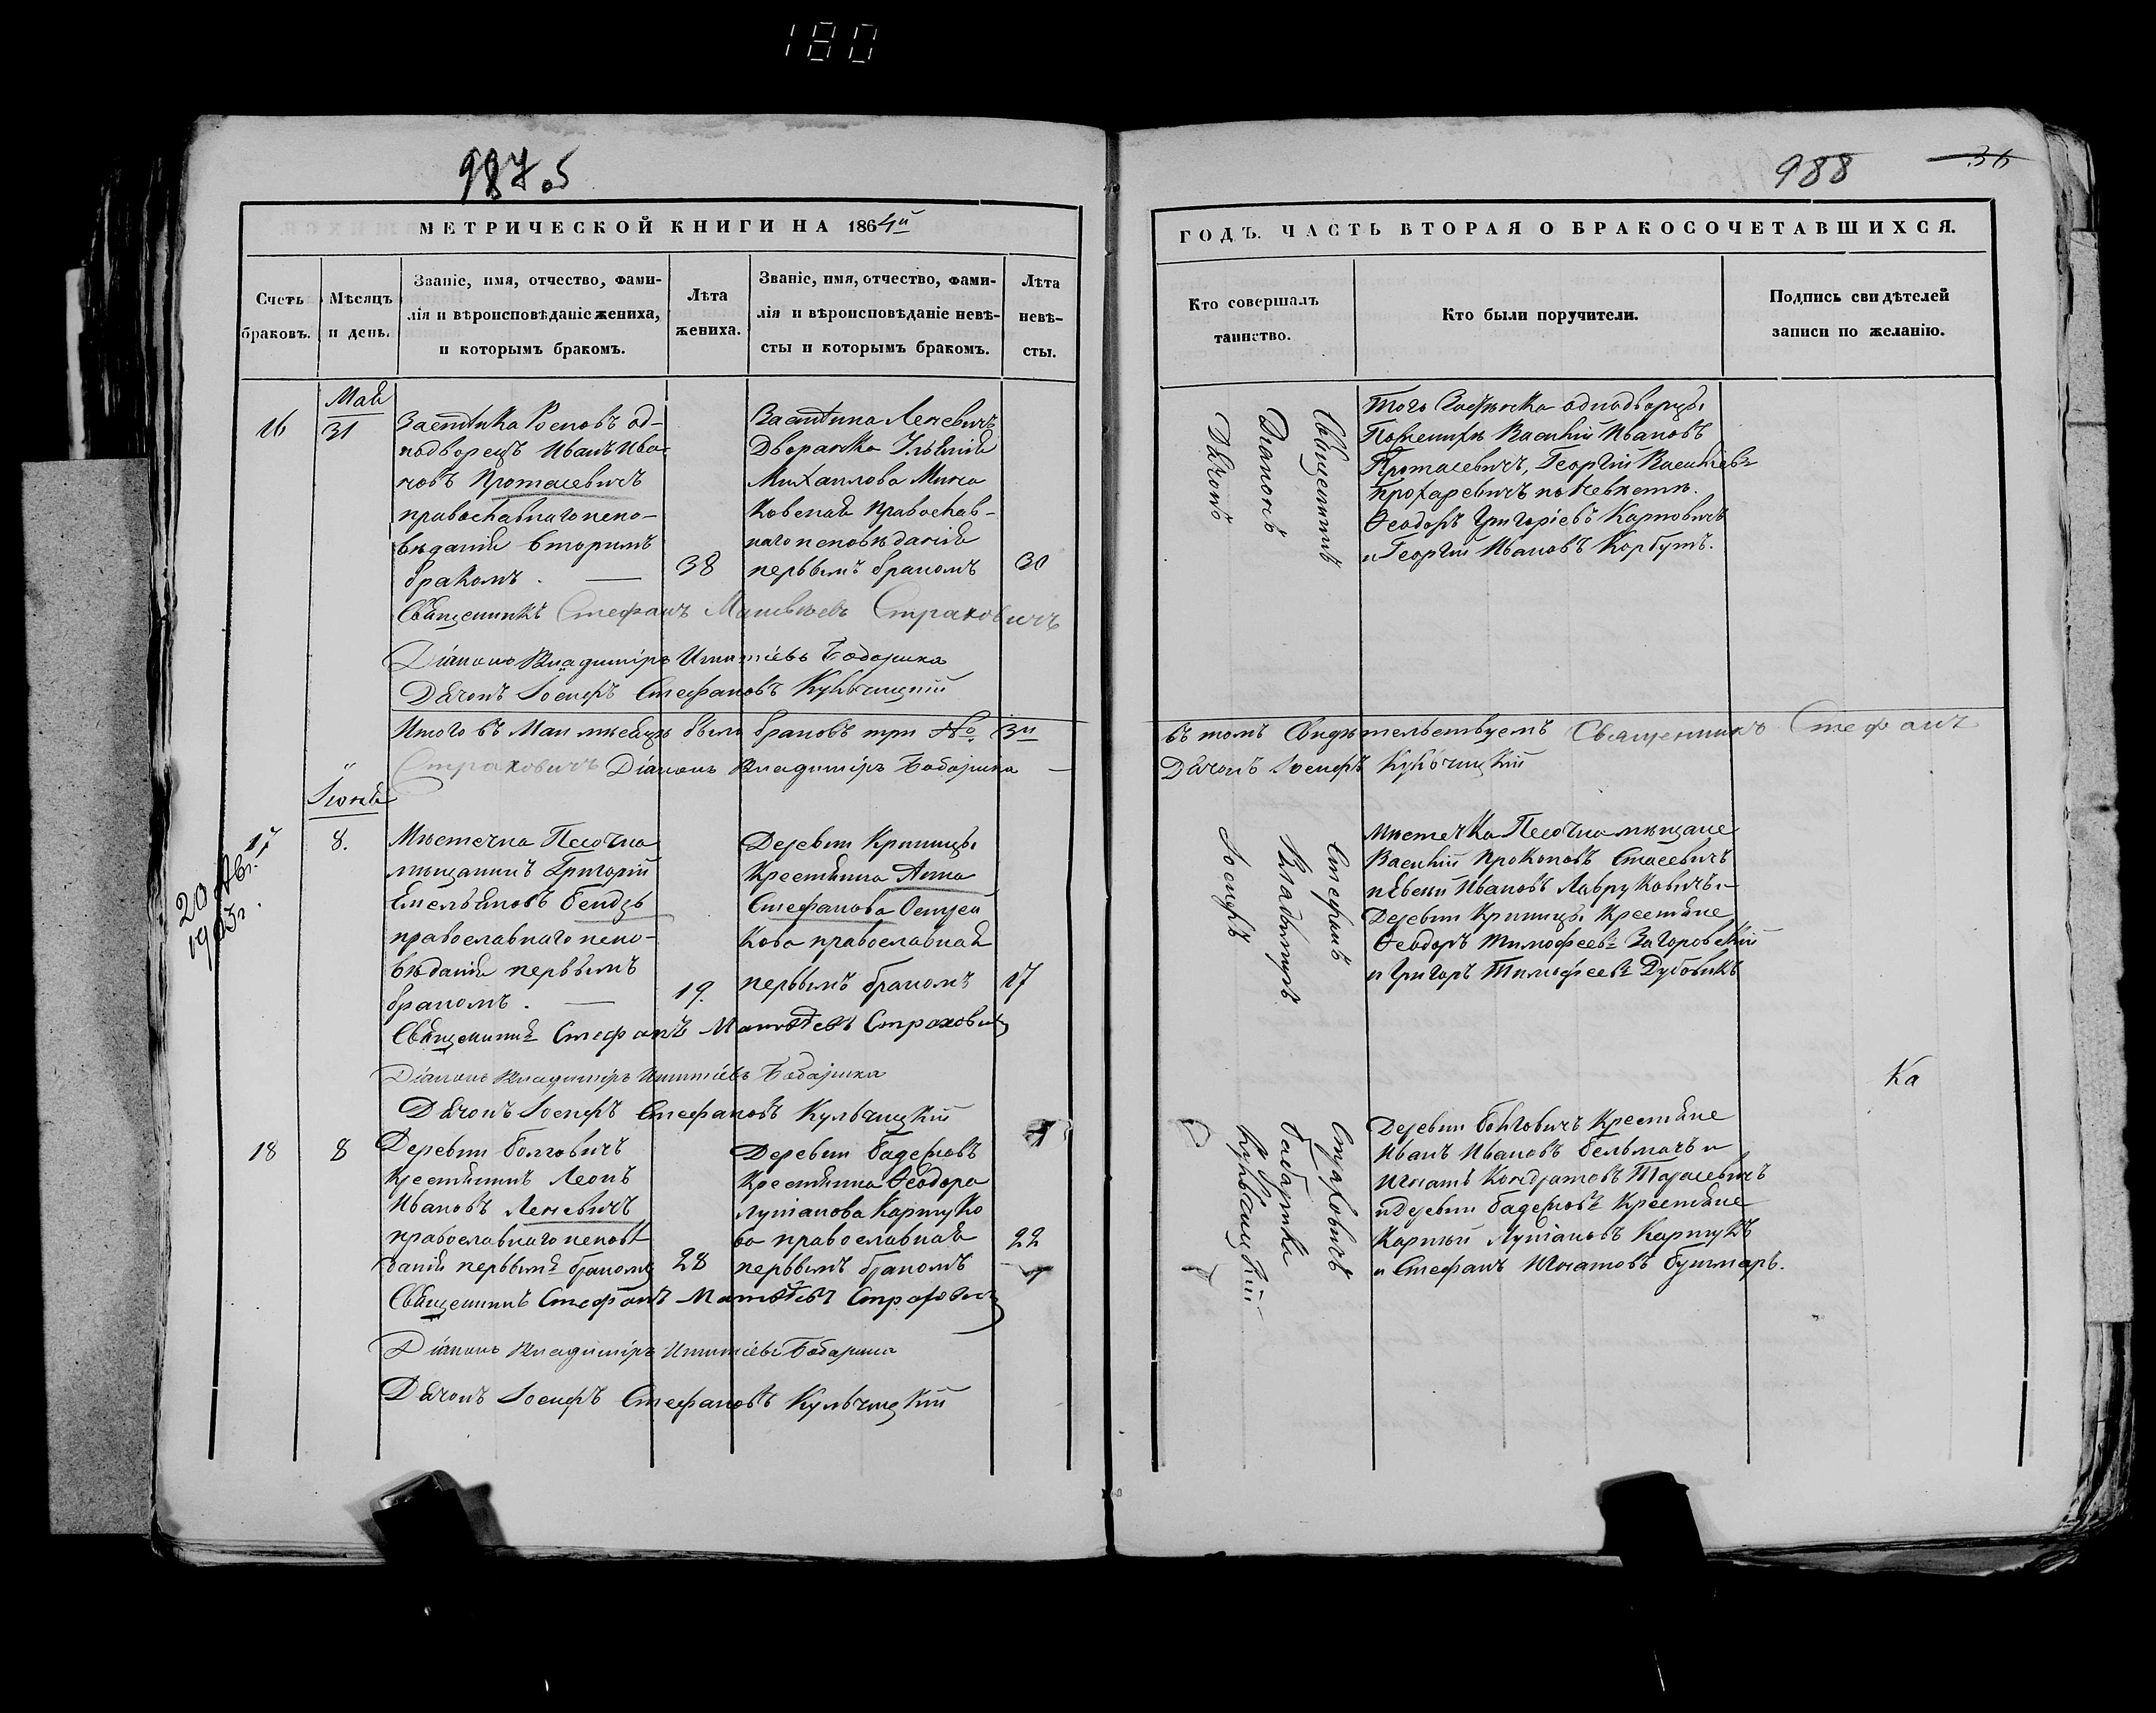 180
987.5
МЕТРИЧЕСКОЙ КНИГИ НА 1864й
Счетъ браковъ.
Мѣсяцъ и день.
Званіе, имя, отчество, фами-
лія и вѣроисповѣданіе жениха,
и которымъ бракомъ.
Лѣта
жениха.
Званіе, имя, отчество, фами-
лія и вѣроисповѣданіе невѣ-
сты и которымъ бракомъ.
Лѣта
невѣ-
сты.
16
Май
31
од-
нодворецъ Иванъ Ива-
новъ Протасевичъ
православнаго испо-
вѣданія вторымъ
бракомъ.
38
Застѣнка Леневичъ
Дворянка
Михаилова Мин
ковская православ-
наго исповѣданія
первымъ бракомъ
30
Священникъ Стефанъ Матвѣевъ Страховичъ
Діаконъ Владиміръ Игнатіевъ Бабарика
Дячокъ Іосифъ Стефановъ Кульчицкій
Итого въ Маи мѣсяцѣ было браковъ три № 3и
Страховичъ Діаконъ Владиміръ Бабарика
Іюня
17
8.
20 Авг.
1903г.
Мѣстечка Песочна
мѣщанинъ Григорій
Емельяновъ Бендзь
православнаго испо-
вѣданія первымъ
бракомъ.
19.
Деревни Криницы
Крестьянка Анна
Стефанова Остей
кова православная
первымъ бракомъ
17
Священникъ Стефанъ Матвѣевъ Страховичъ
Діаконъ Владиміръ Игнатіевъ Бабарика
Дячокъ Іосифъ Стефановъ Кульчицкій
18
8
Деревни Болговичъ
Крестьянинъ Леонъ
Ивановъ Леневичъ
православнаго исповѣ
данія первымъ бракомъ
28
Деревни
Крестьянка Ѳеодора
Лукіанова Карпуко
ва православная
первымъ бракомъ
22
Священникъ Стефанъ Матвѣевъ Страховичъ
Діаконъ Владиміръ Игнатіевъ Бабарика
Дячокъ Іосифъ Стефановъ Кульчицкій
988
36
ГОДЪ. ЧАСТЬ ВТОРАЯ О БРАКОСОЧЕТАВШИХСЯ.
Кто совершалъ
таинство.
Кто были поручители.
Подпись свидѣтелей
записи по желанію.
Священникъ
Діаконъ
Дячокъ
Того Застѣнка однодворцы
По женихѣ Василій Ивановъ
Протасевичъ, Георгій Васильевъ
по невѣстѣ.
Ѳеодоръ Григоріевъ Карповичъ
и Георгій Ивановъ Корбутъ.
въ томъ Свидѣтельствуемъ Священникъ Стефанъ
Дячокъ Іосифъ Кульчицкій
Стефанъ
Владиміръ
Іосифъ
Мѣстечка Песочна мѣщане
Василій Прокоповъ Стасевичъ
Ивановъ Лавруковичъ и
Деревни Криницы Крестьяне
Ѳеодоръ Тимофеевъ Загоровскій
и Григоръ Тимофеевъ Дубовикъ
Ка
Страховичъ
Бабарика
Кульчицкій
Деревни Болговичъ Крестьяне
Иванъ Ивановъ Бельмачъ и
Игнатъ Кондратовъ Тарасевичъ
и Деревни Крестьяне
Карпъ Лукіановъ Карпукъ
и Стефанъ Игнатовъ Бушмаръ.